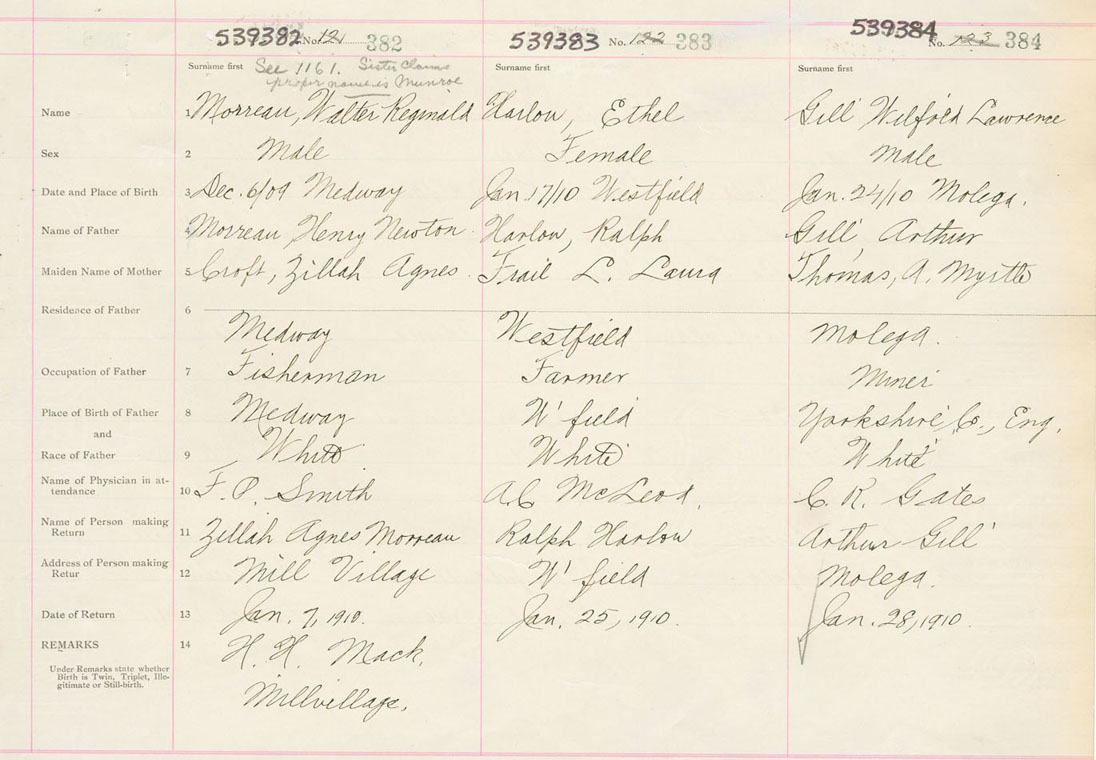 539382 No. 121 382 539383 No. 122 383 539384 No. 123 384
Surname first See 1161. Sister claims Surname first Surname first
proper name is Munroe
Name 1 Morreau, Walter Reginald Harlow, Ethel Gill Wilfold Lawrence
Sex 2 Male Female Male
Date and Place of Birth 3 Dec. 6/09 Medway Jan. 17/10 Westfield Jan. 24/10 Molega.
Name of Father 4 Morreau Henry Newton Harlow, Ralph Gill Arthur
Maiden Name of Mother 5 Croft, Zillah Agnes. Frail L. Laura Thomas, A. Myrtle
Residence of Father 6
Medway Westfield Molega.
Occupation of Father 7 Fisherman Farmer Miner
Place of Birth of Father 8 Medway W'field Yorkshire, Co., Eng.
and
Race of Father 9 White White White
Name of Physician in at-
tendance 10 F. P. Smith A. C. McLeod. C. R. Gates
Name of Person making
Return 11 Zillah Agnes Morreau Ralph Harlow Arthur Gill
Address of Person making
Retur 12 Mill Village W'field Molega.
Date of Return 13 Jan. 7, 1910. Jan. 25, 1910. Jan. 28, 1910.
REMARKS 14 H. H. Mack,
Under Remarks state whether
Birth is Twin, Triplet, Ille-
gitimate or Still-birth.
Millvillage.